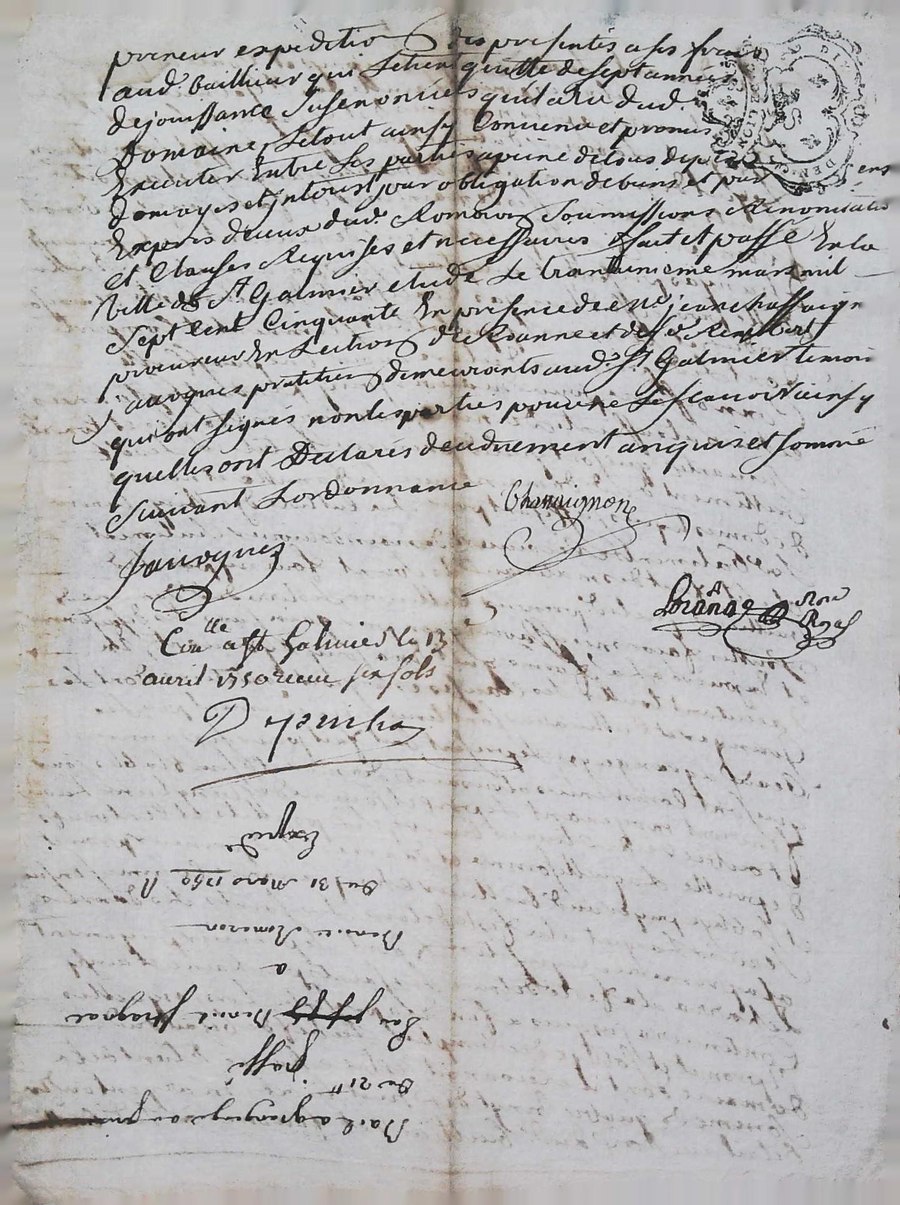 preneur expedition des presentes a ses frais
aud. bailleur qui le tient quitte de sept années
de jouissance susenoncées quil a eu dud.
Domaine, le tout ainsy Convenu et promis
Executer Entre les parties a peine de tous depens
domages et interest, par obligation de biens et par
Expres de ceux dud. Romeron Soumissions Renonciations
et Clauses Requises et necessaires fait et passé En la
ville de St Galmier etude Le trantunieme mars mil
Sept Cent Cinquante En presence de me jean chassaign
procureur En Lection de Roanne et de sr Rembert
javogues praticien demeurants aud. St Galmier temoin
qui ont signés non les parties pour ne le scavoir ainsy
quelles ont Declarés de ce duement anquis et sommé
suivant Lordonnance
Chassaignon
Javogues
No[...]
Royal
Con.lle a St Galmier le 13
avril 1750 recu six sols
Expedié
Du 31 Mars 1750
Benoit Romeron
a
Par Benoit
passé
Du 21
Bail a grangeage